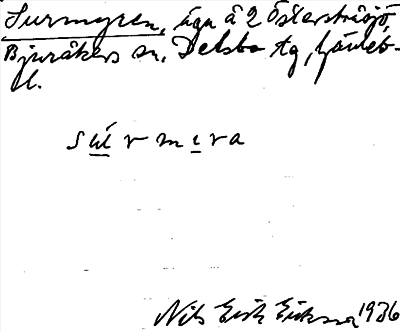 Surmyren, äga å 2 Österstråsjö,
Bjuråkers sn, Delsbo tg, Gävleb-
l.
s u̲í̲ r m ı̲ r a
Nils Erik Eriksson 1936